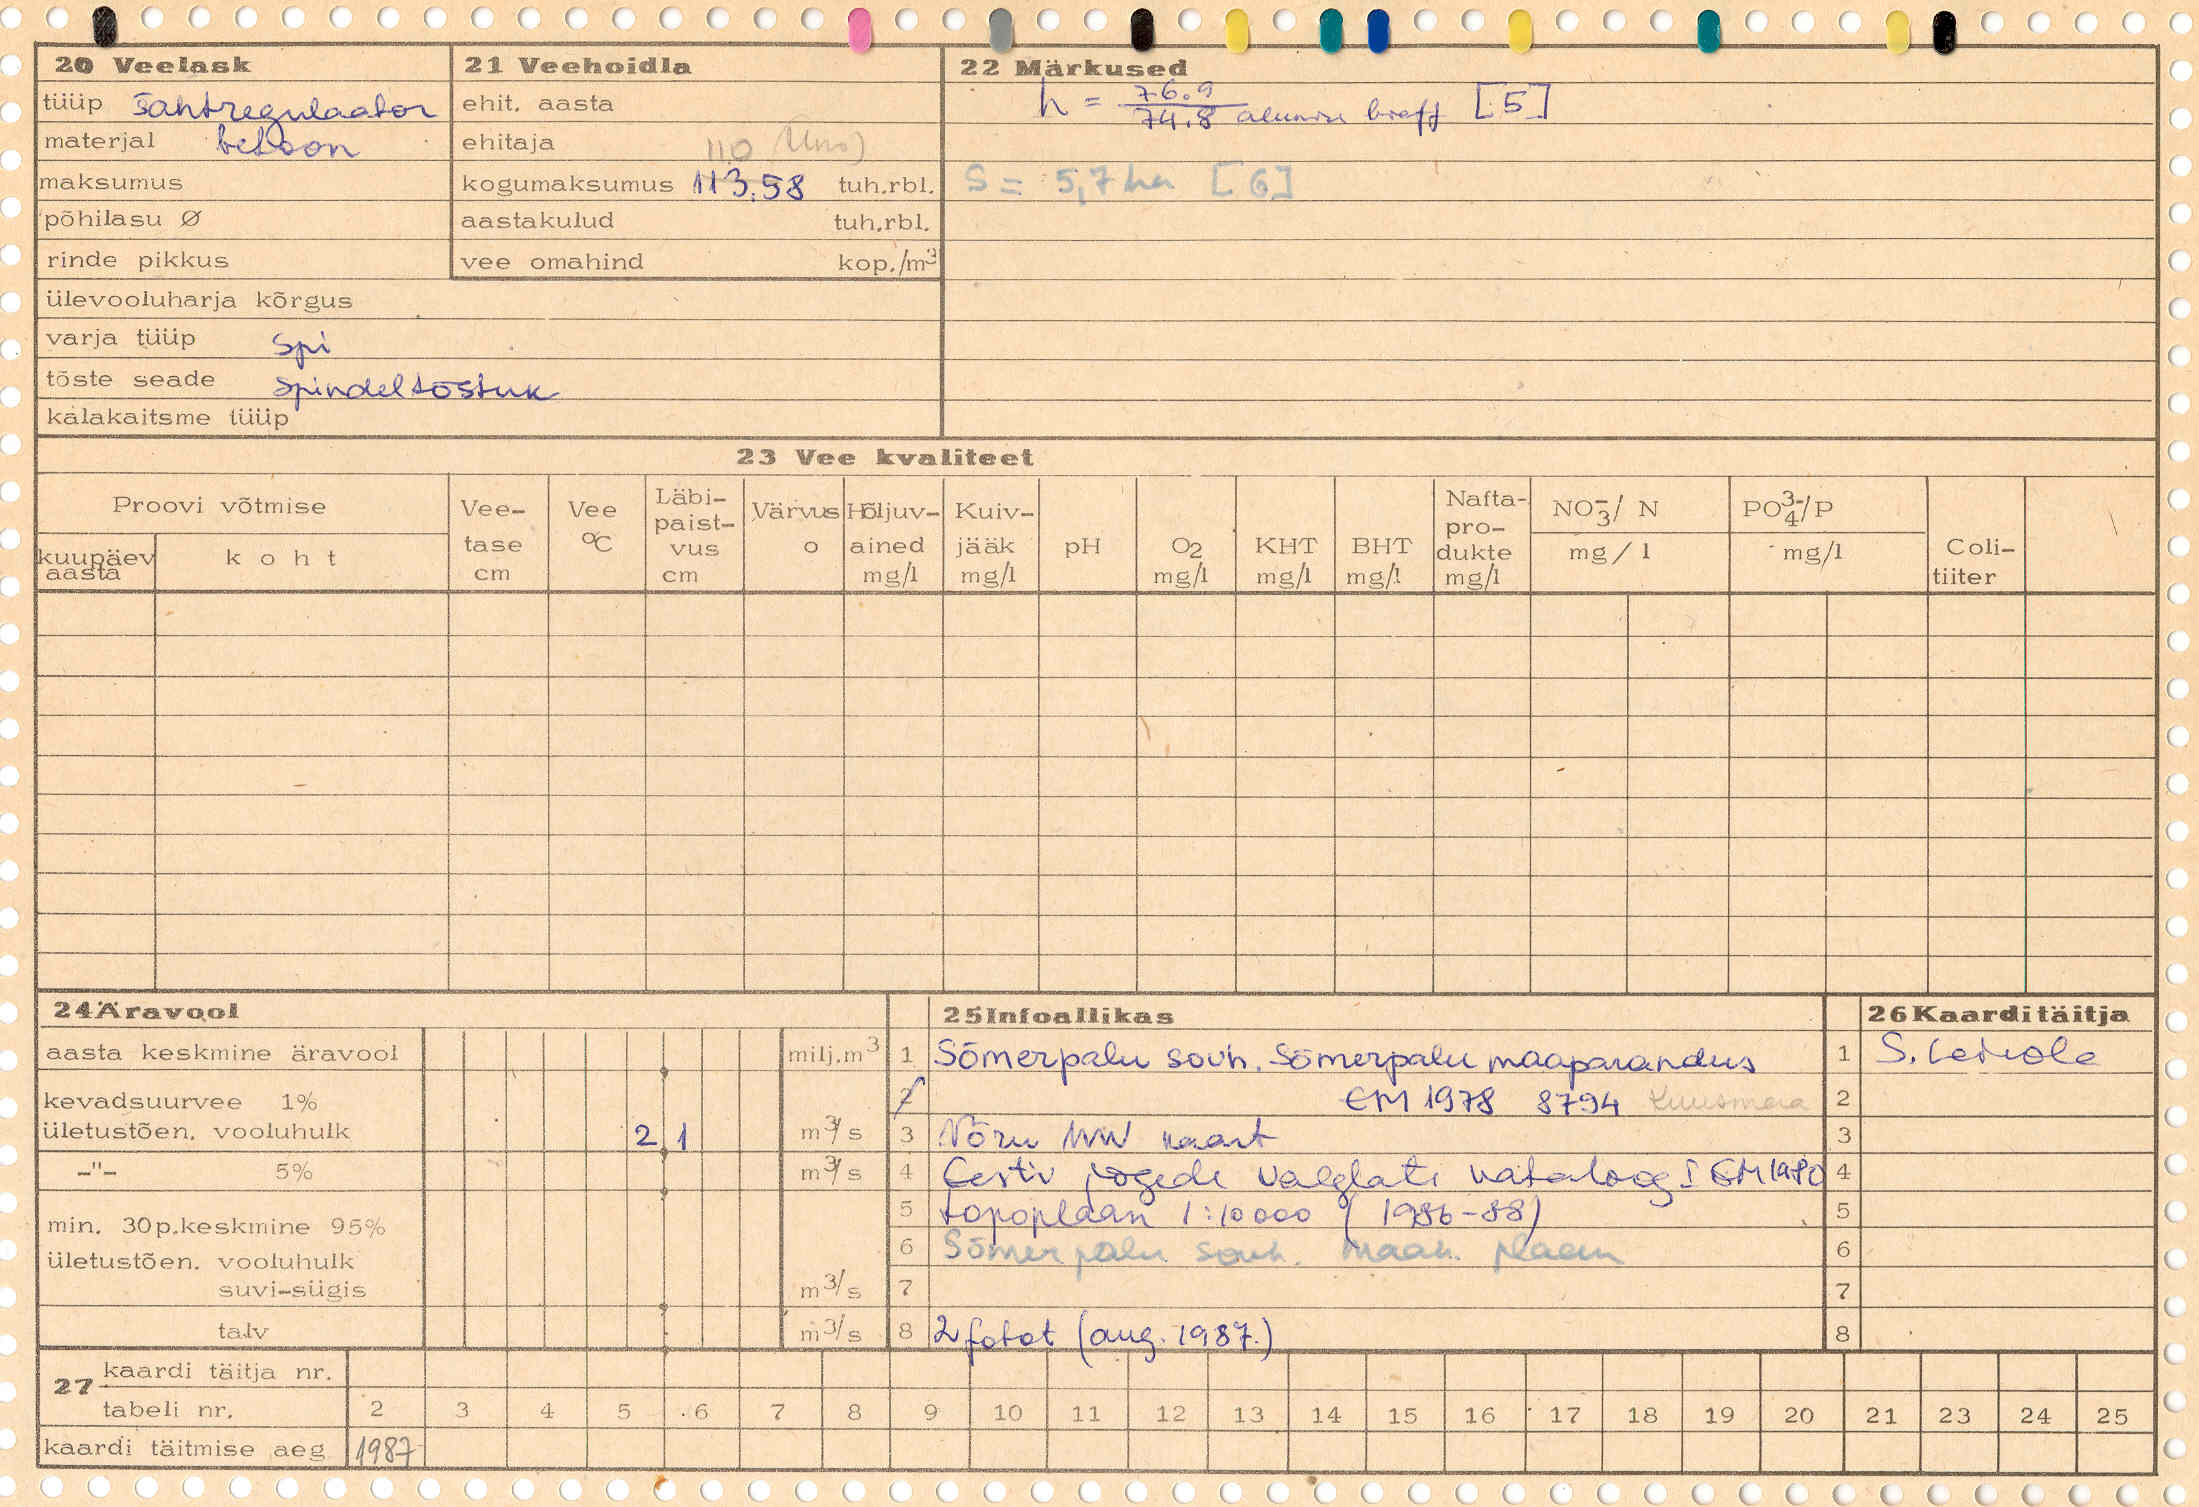 20 Veelask
tüüp šahtregulaator
materjal betoon
maksumus
põhilasu Ø
rinde pikkus
ülevooluharja kõrgus
varja tüüp spi
tõste seade spindeltõstuk
kalakaitsme tüüp
21 Veehoidla
ehit. aasta
ehitaja
110
kogumaksumus 113.58 tuh.rbl.
aastakulud tuh.rbl.
vee omahind kop./m³
22 Märkused
h = 76.9
74.8 alumise [5]
S = 5,7 ha [6]
23 Vee kvaliteet
Proovi võtmise
kuupäev aasta
koht
Vee-tase cm
Vee °C
Läbi-paist-vus cm
Värvus o
Hõljuv-ained mg/l
Kuiv-jääk mg/l
pH
O2 mg/l
KHT mg/l
BHT mg/l
Nafta-pro-dukte mg/l
NO3-/ N mg/l
PO4 3-/P mg/l
Coli-tiiter
24 Äravool
aasta keskmine äravool milj.m³
kevadsuurvee 1%
ületustõen. vooluhulk 2 1 m³/s
-"- 5% m³/s
min. 30p.keskmine 95%
ületustõen. vooluhulk
suvi-sügis m³/s
talv m³/s
25 Infoallikas
1 Sõmerpalu sovh. Sõmerpalu maaparandus
2 EM 1978 8794 Kuusmaa
3 Võru kaart
4 Eesti jõgede valglate kataloog I EM 1980
5 topoplaan 1:10000 (1986-88)
6 Sõmerpalu sovh. maak. plaan
7
8 2 fotot (aug. 1987.)
26 Kaardi täitja
1 S.
2
3
4
5
6
7
8
27 kaardi täitja nr.
tabeli nr. 2 3 4 5 6 7 8 9 10 11 12 13 14 15 16 17 18 19 20 21 23 24 25
kaardi täitmise aeg 1987